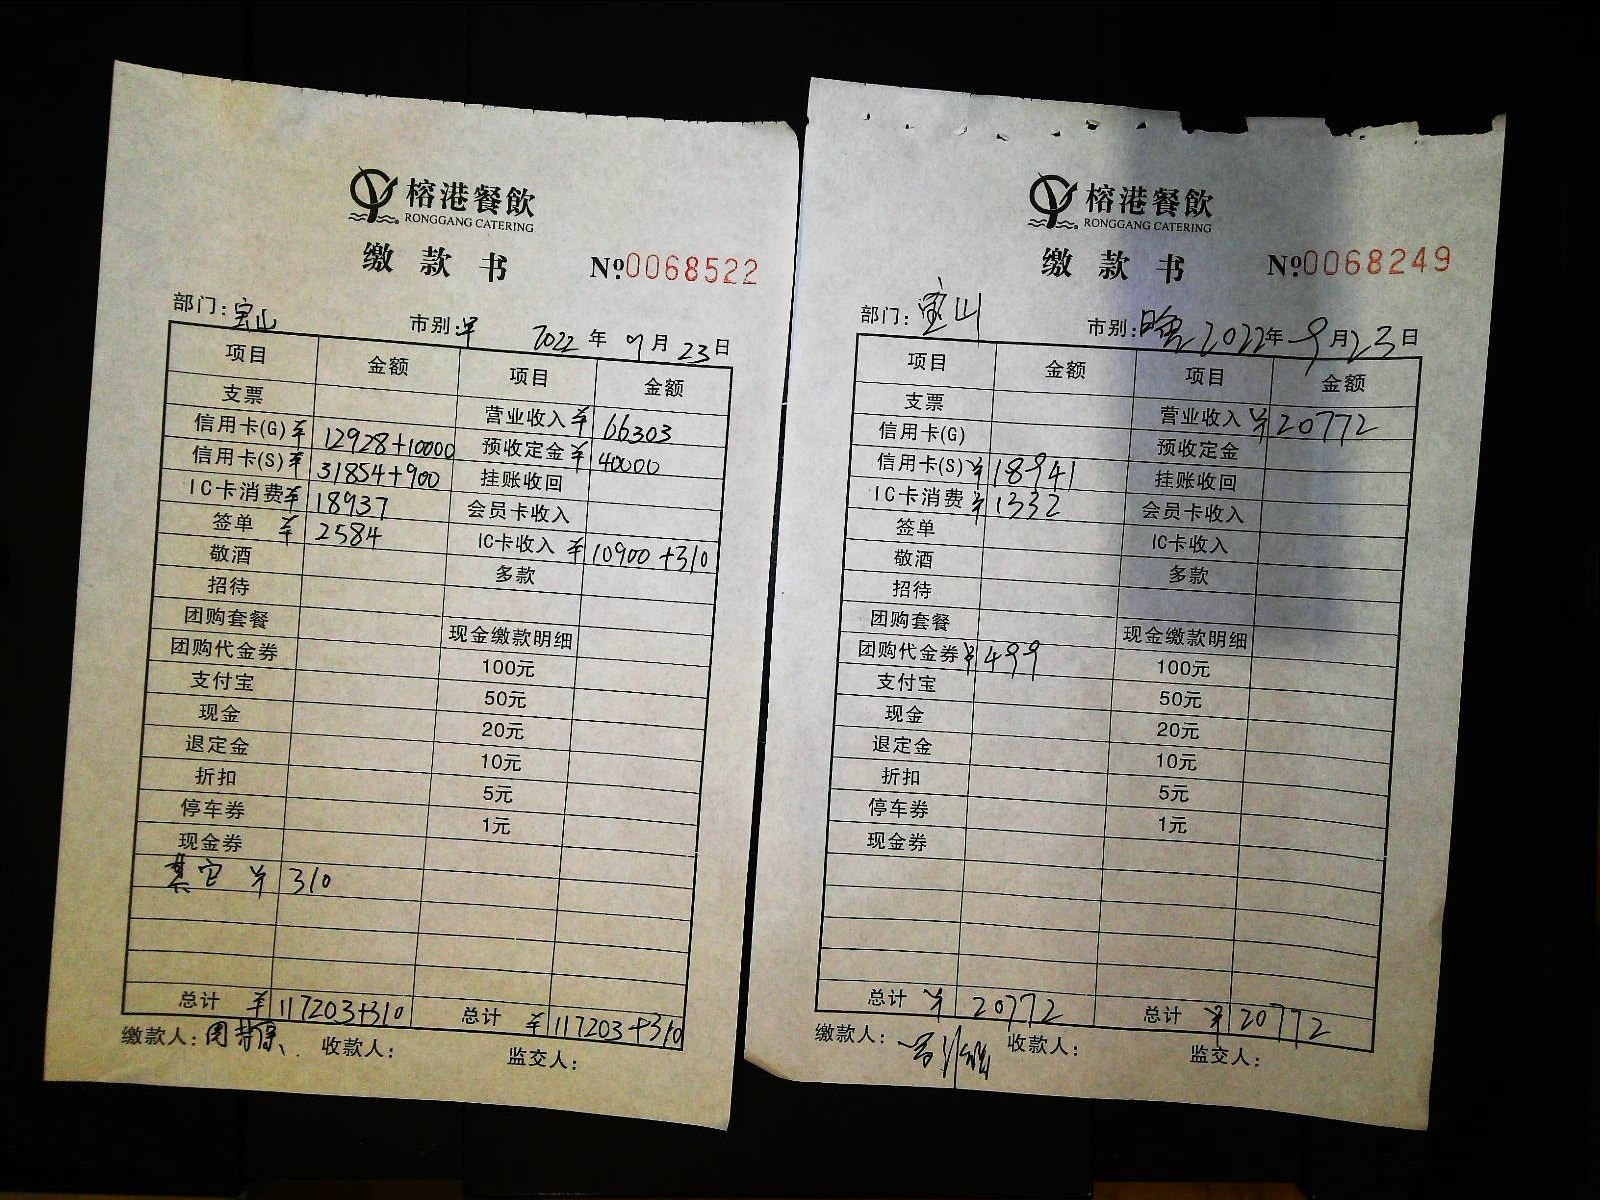 榕港餐飲
RONGGANG CATERING
缴款书 №0068522
部门:宝山 市别:早 2022年9月23日
项目 金额 项目 金额
支票 营业收入¥ 66303
信用卡(G)¥ 12928+10000 预收定金¥ 40000
信用卡(S)¥ 31854+900 挂账收回
IC卡消费¥ 18937 会员卡收入
签单 ¥ 2584 IC卡收入 ¥ 10900+310
敬酒 多款
招待
团购套餐 现金缴款明细
团购代金券 100元
支付宝 50元
现金 20元
退定金 10元
折扣 5元
停车券 1元
现金券
其它 ¥ 310
总计 ¥ 117203+310 总计 ¥ 117203+310
缴款人: 收款人: 监交人:
榕港餐飲
RONGGANG CATERING
缴款书 №0068249
部门:宝山 市别:晚 2022年9月23日
项目 金额 项目 金额
支票 营业收入¥ 20772
信用卡(G) 预收定金
信用卡(S)¥ 18941 挂账收回
IC卡消费¥ 1332 会员卡收入
签单 IC卡收入
敬酒 多款
招待
团购套餐 现金缴款明细
团购代金券¥ 499 100元
支付宝 50元
现金 20元
退定金 10元
折扣 5元
停车券 1元
现金券
总计 ¥ 20772 总计 ¥ 20772
缴款人: 收款人: 监交人: